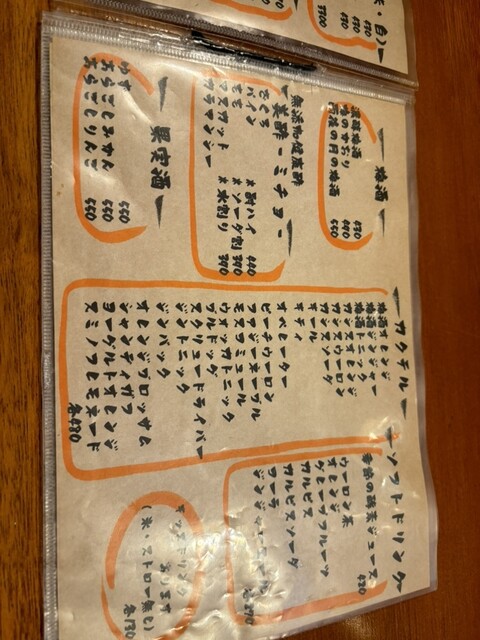 梅酒
濃醇梅酒 430
梅のかおり 490
の月の梅酒 550
無添加健康酢
美酢-ミチョー-
ざくろ
パイン *酎ハイ 440
もも *ソーダ割 390
マスカット *水割り 390
カラマンシー
果実酒
ゆず 550
あらごしみかん 550
あらごしりんご 550
カクテル
梅酒オレンジ
梅酒ジンジャー
梅酒トニック
カシスオレンジ
カシスウーロン
カシスソーダ
キール
キティ
オペレーター
ピーチウーロン
ファジーネーブル
モスコミュール
ウォッカトニック
ブルドッグ
スクリュードライバー
ジントニック
ジンバック
オレンジブロッサム
シャンディガフ
ヨーグルトオレンジ
スミノフレモネード
各430
ソフトドリンク
の酸素ジュース 430
ウーロン茶
オレンジ
グレープフルーツ
カルピス
カルピスソーダ
コーラ
ジンジャーエール
各270
キッズドリンク
あります
(氷・ストロー無し)
各130